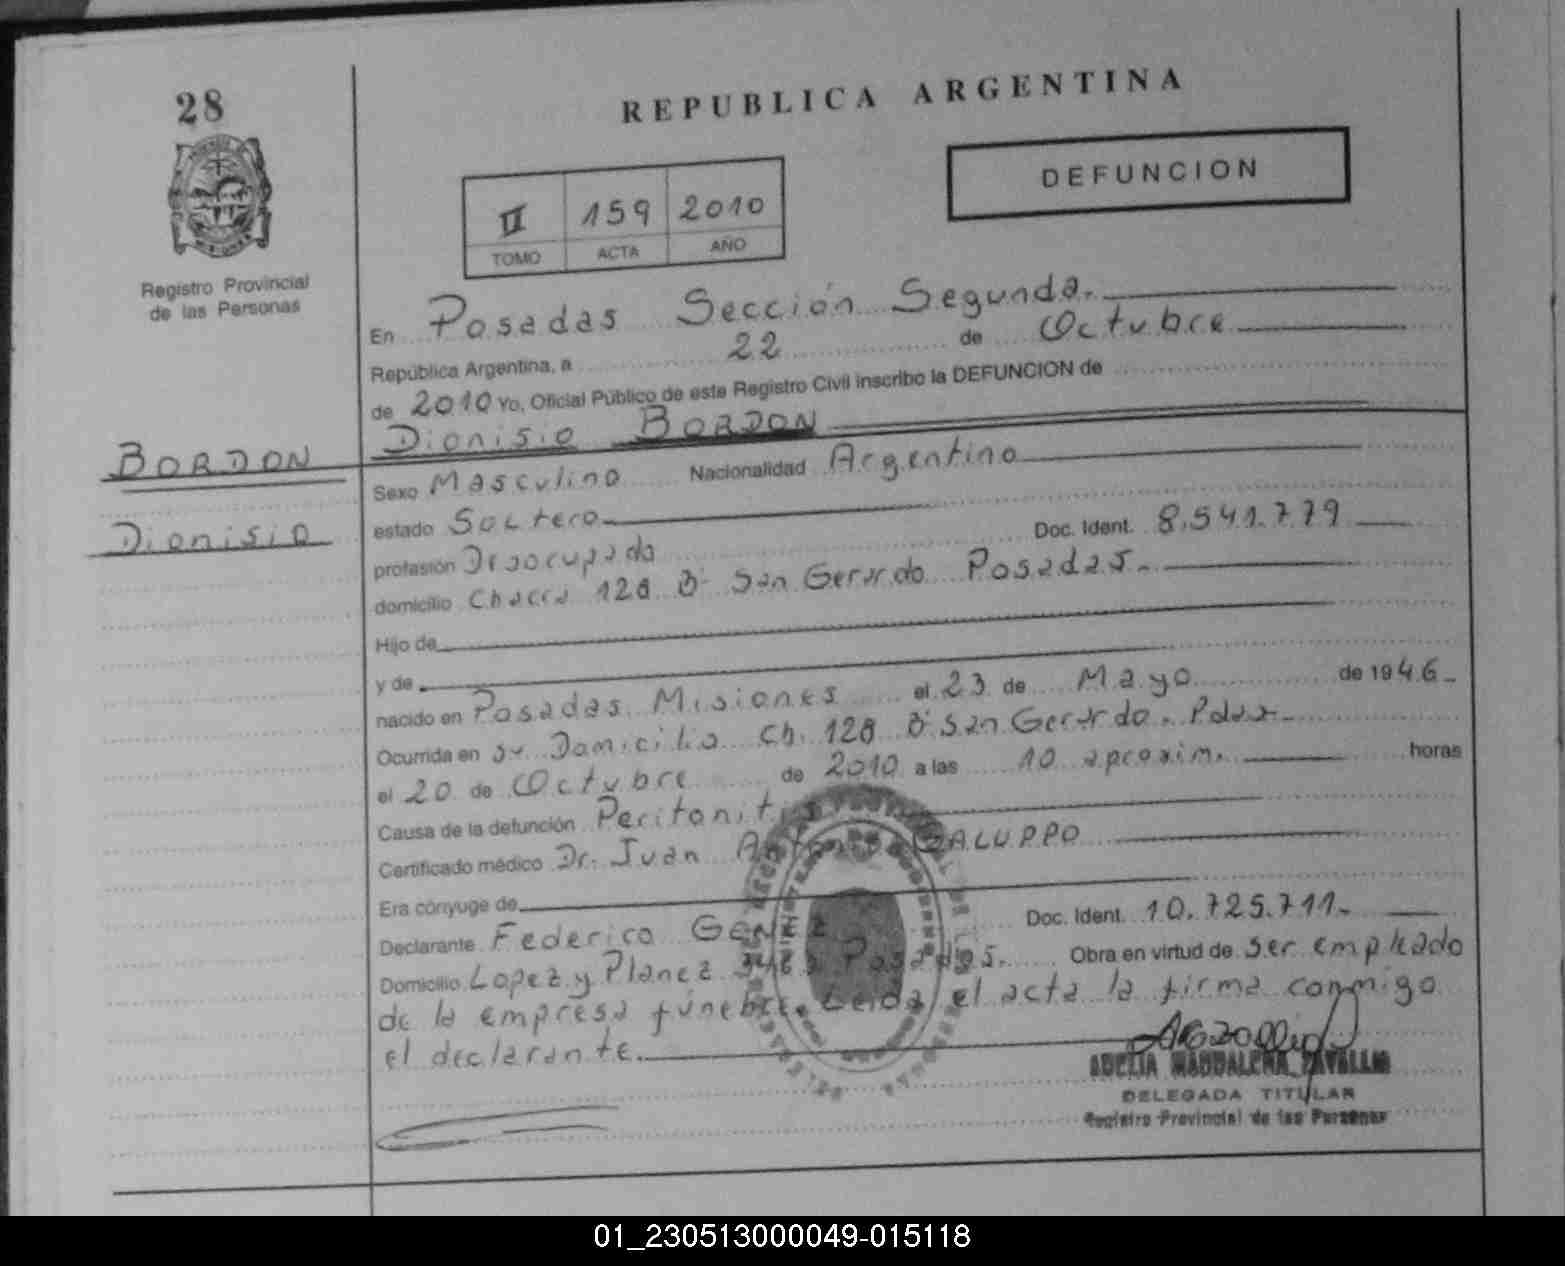 28
REPUBLICA ARGENTINA
DEFUNCION
II 159 2010
TOMO ACTA AÑO
Registro Provincial
de las Personas
En Posadas Sección Segunda.
República Argentina, a 22 de Octubre
de 2010 Yo, Oficial Público de este Registro Civil inscribo la DEFUNCION de
Dionisio BORDON
BORDON
Dionisio
Sexo Masculino Nacionalidad Argentino
estado Soltero
profesión Desocupado Doc. Ident. 8.541.779
domicilio Chacra 128 B° San Gerardo Posadas.
Hijo de
y de
nacido en Posadas Misiones el 23 de Mayo de 1946
Ocurrida en su Domicilio Ch. 128 B° San Gerardo. Pdas.
el 20 de Octubre de 2010 a las 10 aproxim. horas
Causa de la defunción Peritonitis
Certificado médico Dr. Juan GALUPPO
Era cónyuge de
Declarante Federico GENEZ Doc. Ident. 10.725.711.
Domicilio Lopez y Planez Posadas. Obra en virtud de ser empleado
de la empresa fúnebre. Leida el acta la firma conmigo
el declarante.
DELEGADA TITULAR
Registro Provincial de las Personas
01_230513000049-015118